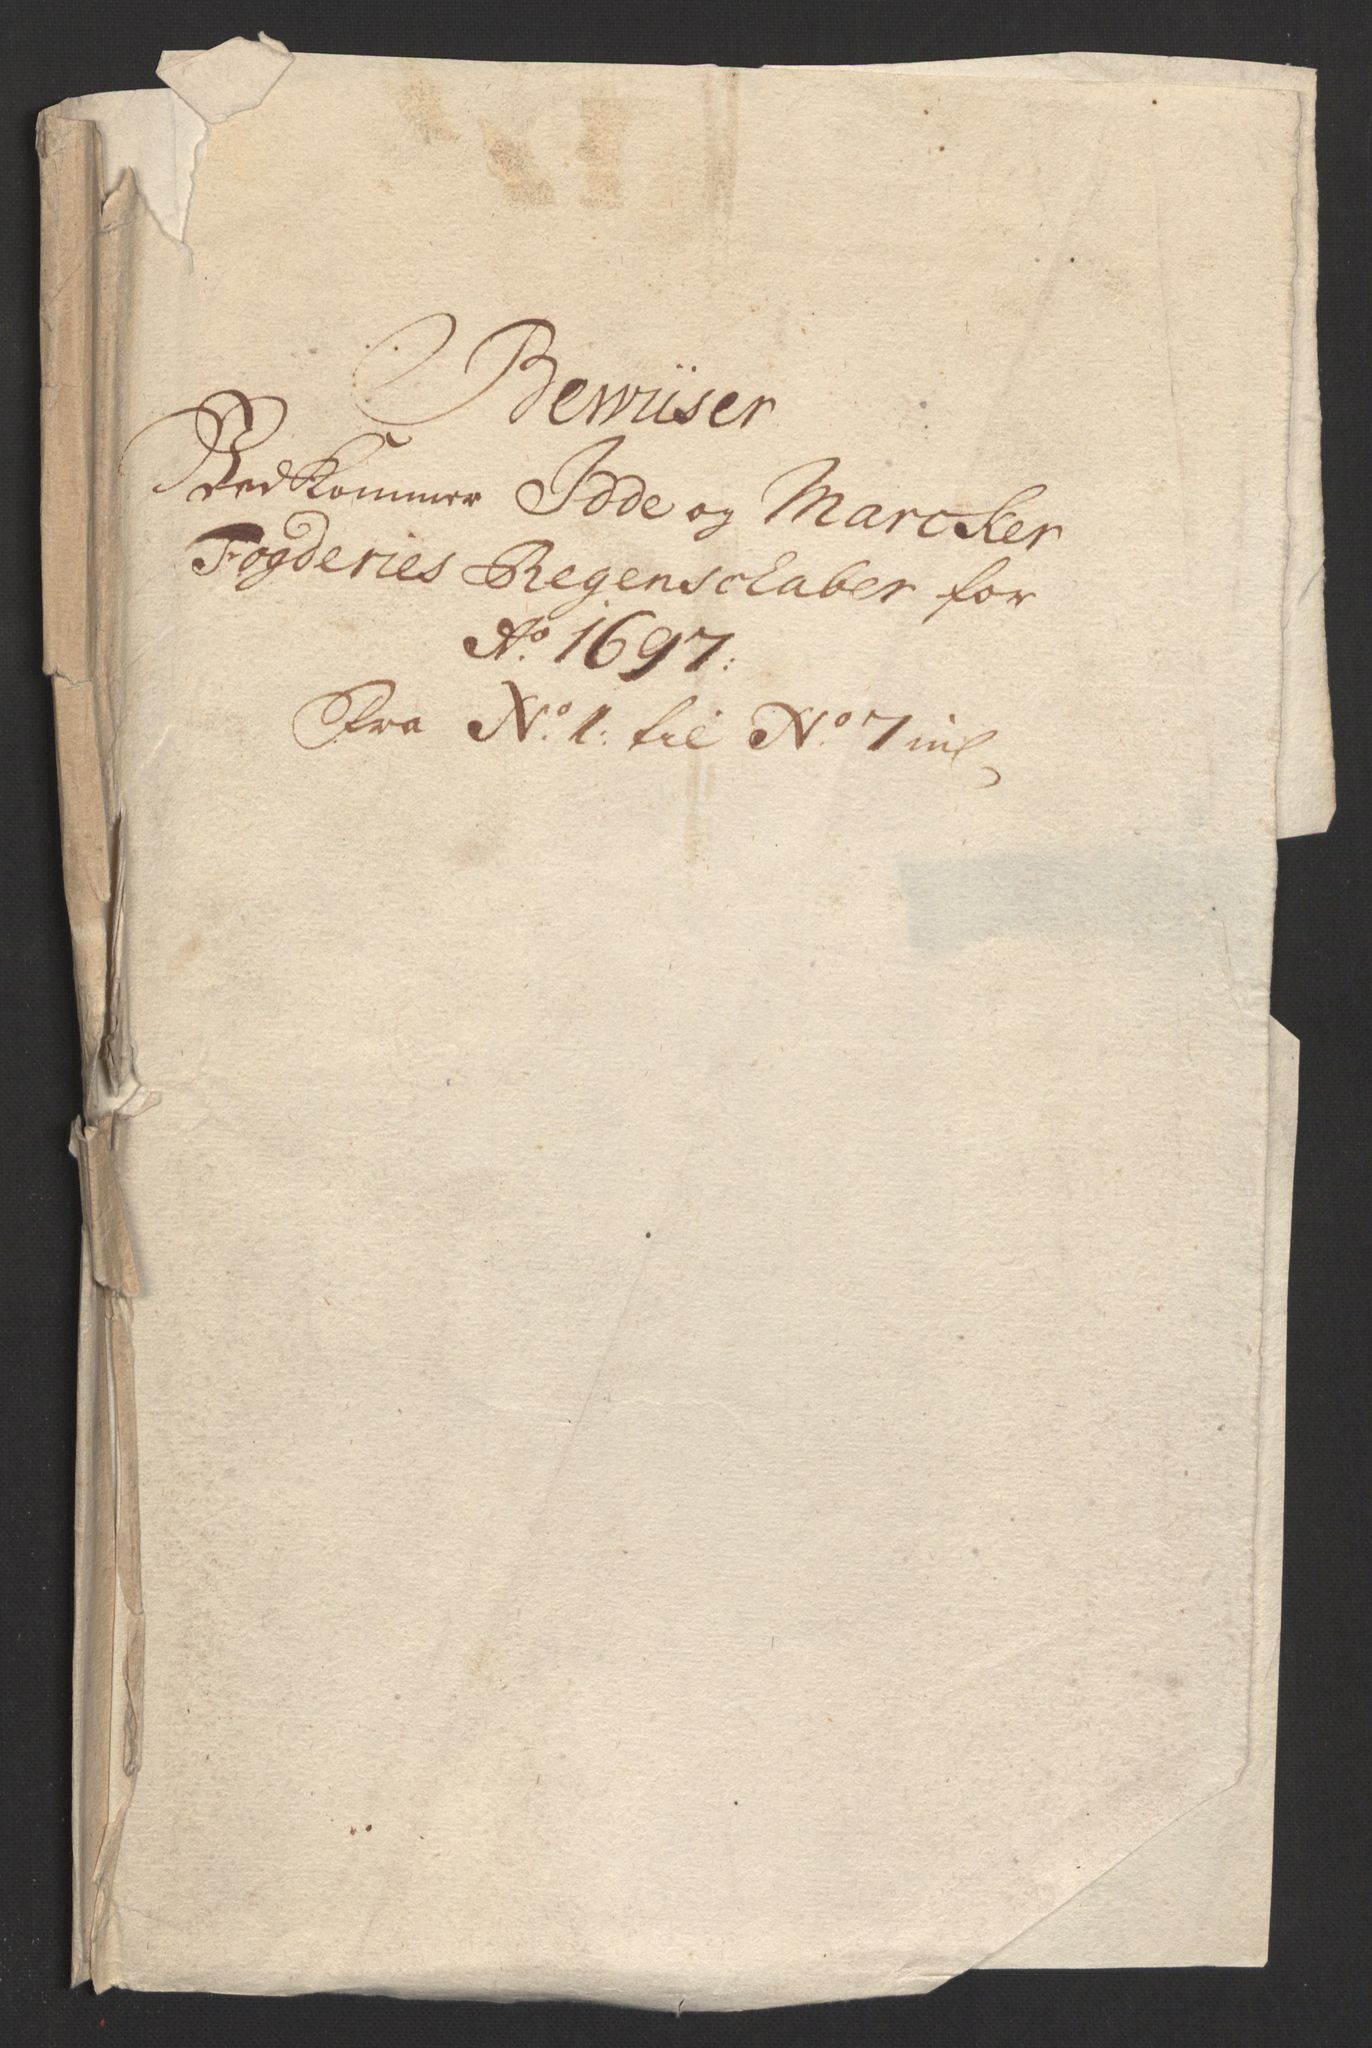 Bewiiser
Vedkommer Idde og Marcker
Fogderies Regenschaber for
Ao. 1697.
Fra No. 1. til No. 7 incl